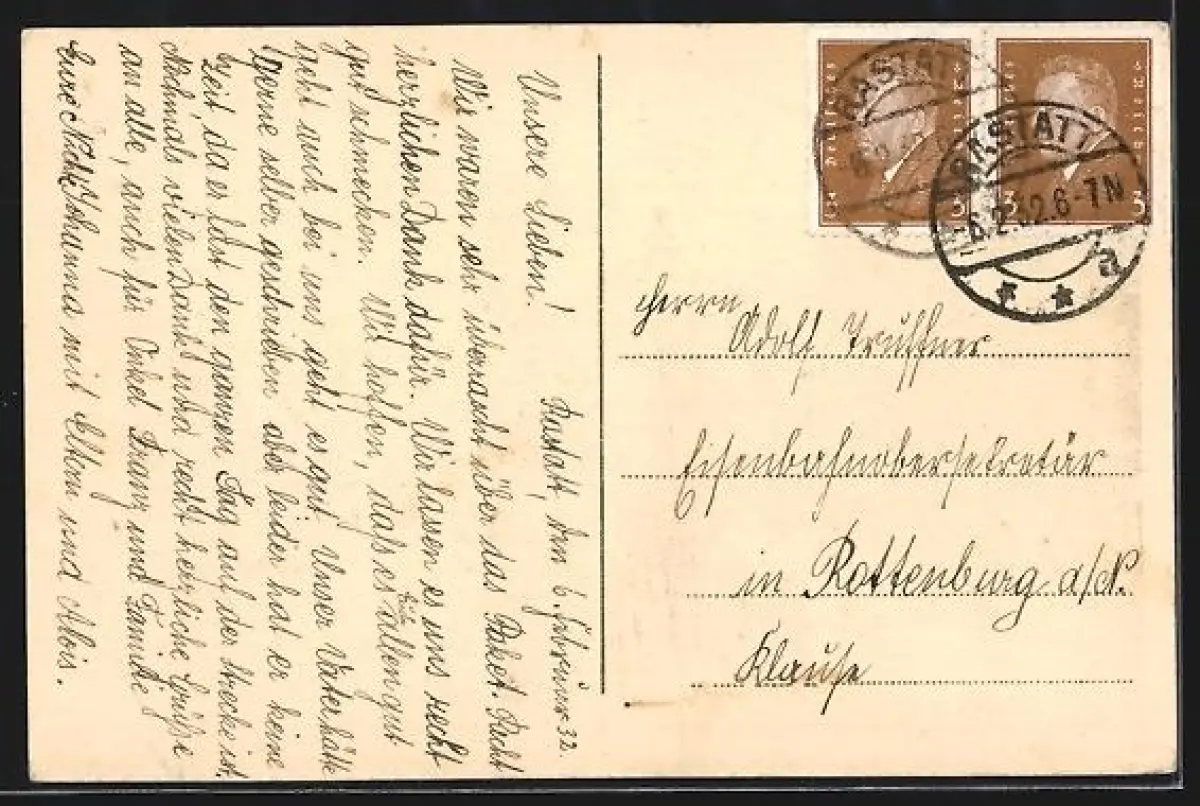 Rastatt, den 6. Februar 32.
Unsere Lieben!
Wir waren sehr überrascht über das Paket. Recht
herzlichen Dank dafür. Wir lassen es uns recht
gut schmecken. Wir hoffen, daß es euch allen gut
geht auch bei uns geht es gut. Unser Vater hätte
gerne selber geschrieben aber leider hat er keine
Zeit, da er fast den ganzen Tag auf der Strecke ist.
Nochmals vielen Dank und recht herzliche Grüße
an alle, auch für Onkel Franz und Familie
Eure Nichte Johanna mit Eltern und Alois.
DEUTSCHES REICH
3 3
DEUTSCHES REICH
3 3
RASTATT
6.2
RASTATT
6.2.32.6-7N
a
Herrn
Adolf Truffner
Eisenbahnobersekretär
in Rottenburg a/N.
Klause